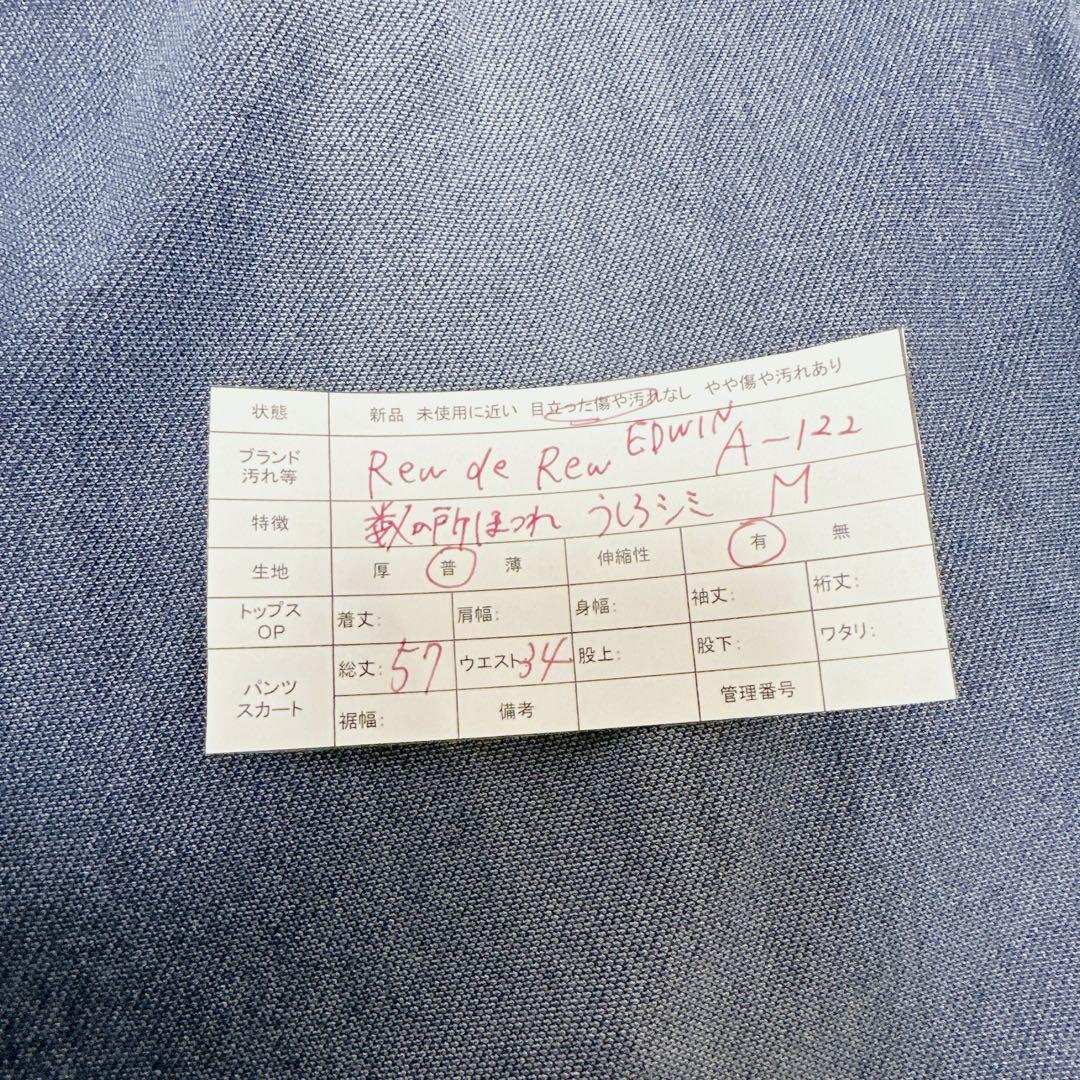 状態 新品 未使用に近い 目立った傷や汚れなし やや傷や汚れあり
ブランド 汚れ等 Rew de Rew EDWIN A-122
特徴 数カ所ほつれ うしろシミ M
生地 厚 普 薄 伸縮性 有 無
トップス OP 着丈: 肩幅: 身幅: 袖丈: 裄丈:
パンツ スカート 総丈: 57 ウエスト 34 股上: 股下: ワタリ:
裾幅: 備考 管理番号